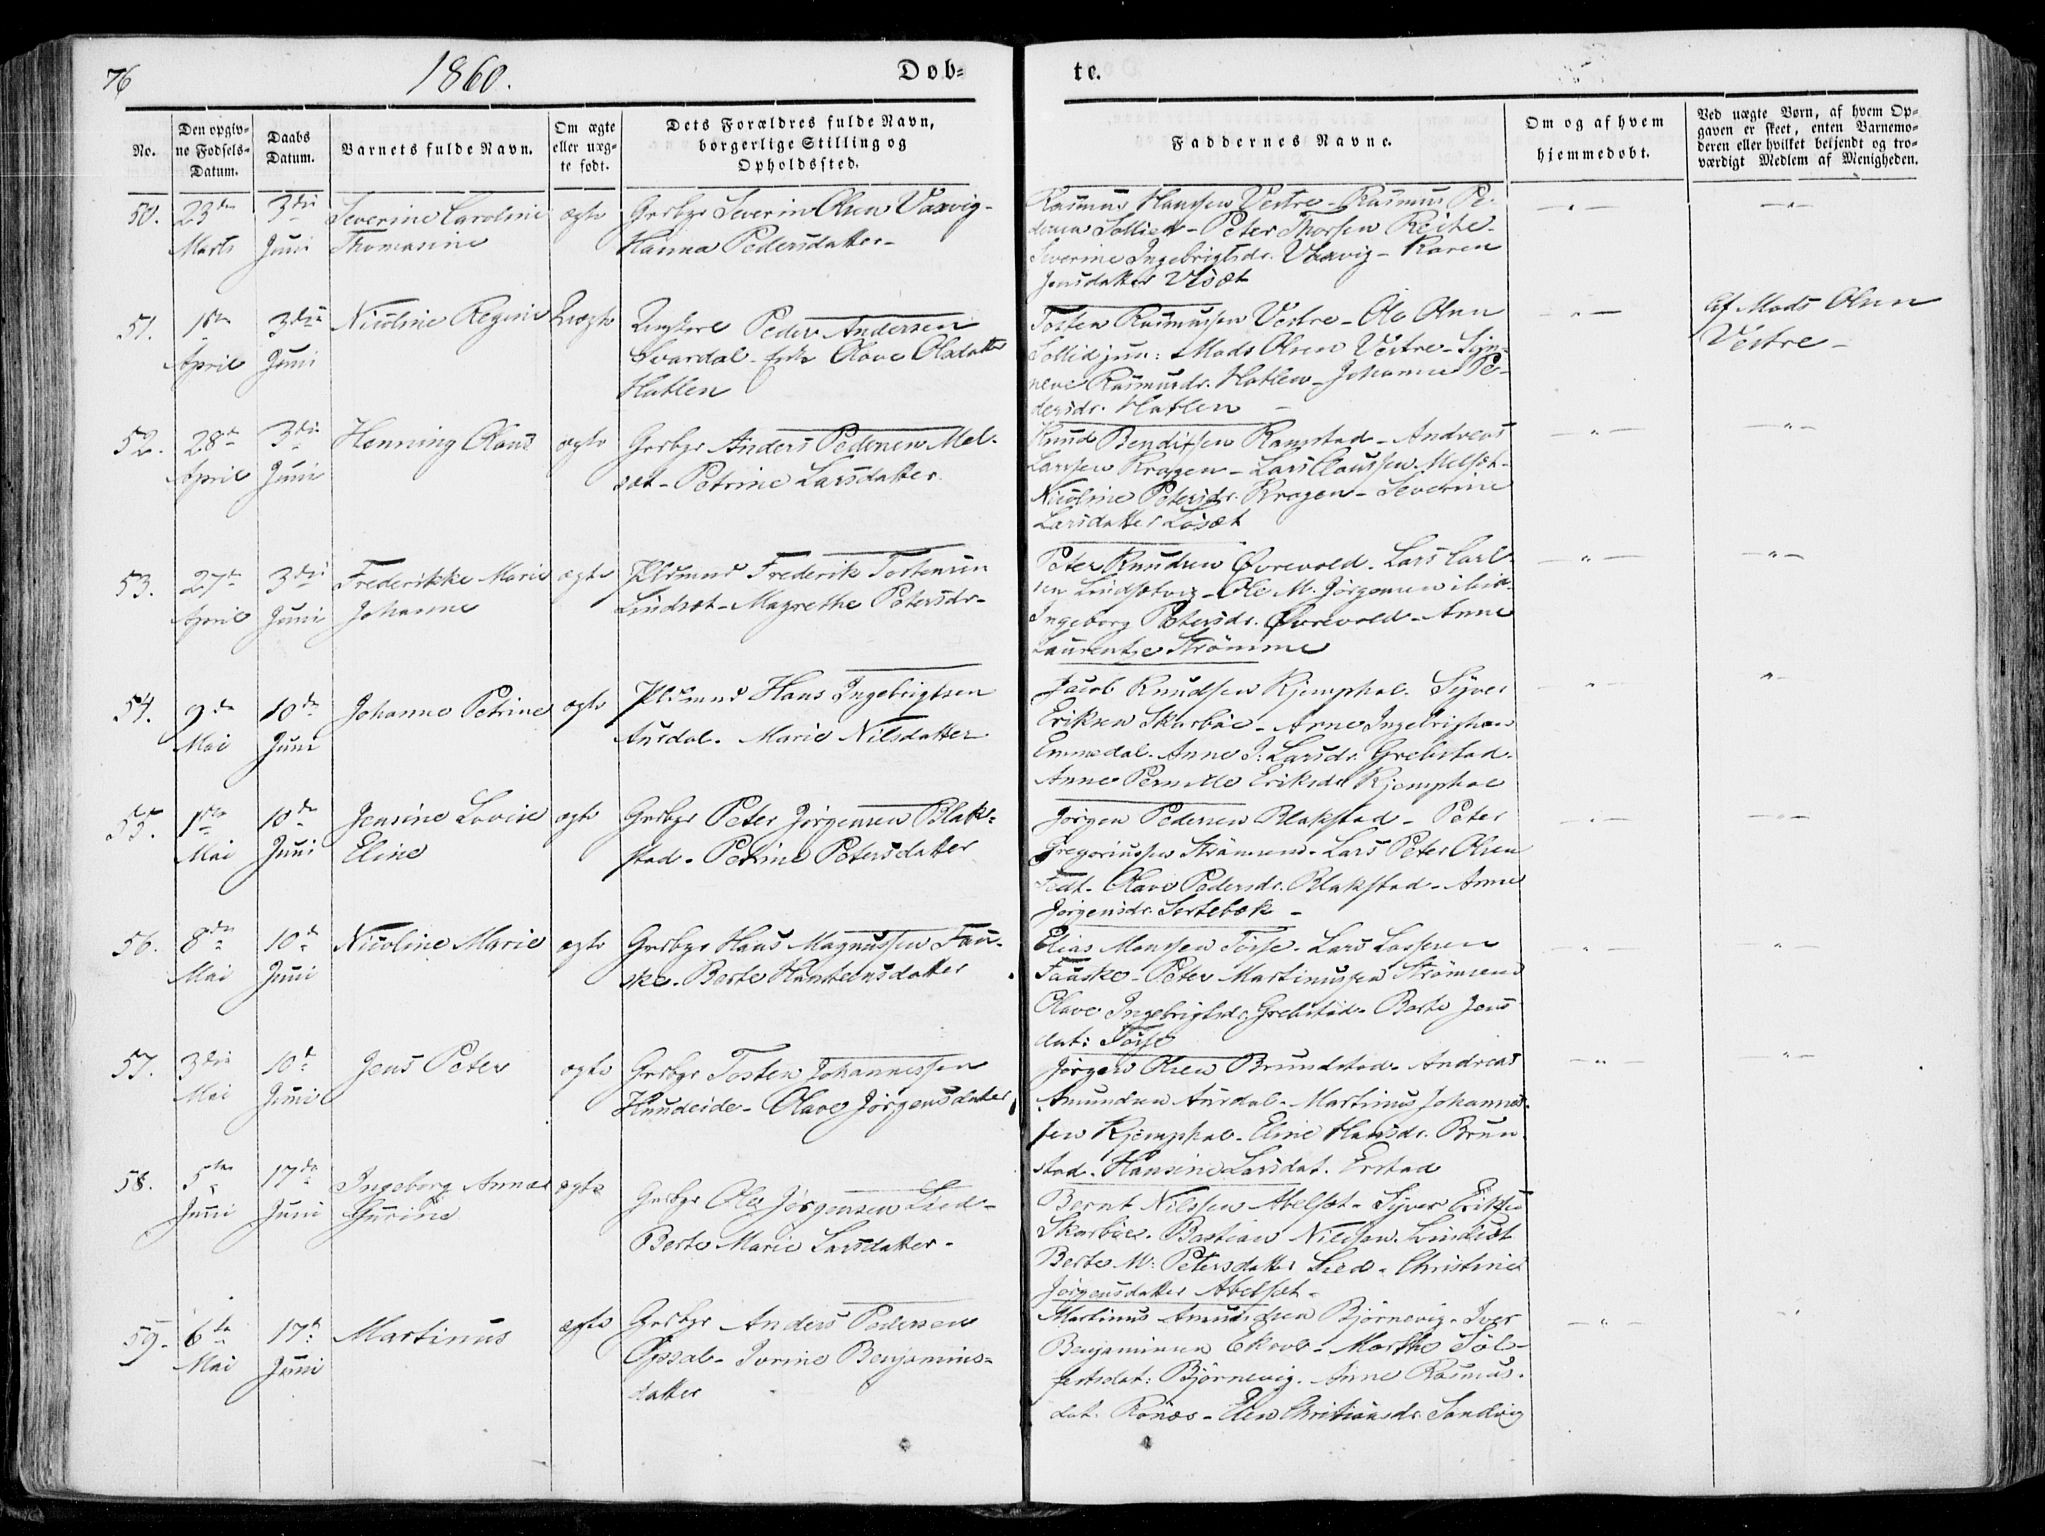 76
1860.
Døb-
te.
No.
Den opgiv-
ne Fødsels-
Datum.
Daabs
Datum.
Barnets fulde Navn.
Om ægte
eller uæg-
te født.
Dets Forældres fulde Navn,
borgerlige Stilling og
Opholdssted.
Faddernes Navne.
Om og af hvem
hjemmedøbt.
Ved uægte Børn, af hvem Op-
gaven er skeet, enten Barnemo-
deren eller hvilket bekjendt og tro-
værdigt Medlem af Menigheden.
50.
23de
Marts
3die
Juni
Severine Caroline
Thomasine
ægte
Grdbgr Severin Olsen Vaxvig-
Hanna Pedersdatter-
Rasmus Hanssen Vestre- Rasmus Pe-
dersen Sollien- Peter Thorsen Reite-
Severine Ingebrigtsdr. Vaxvig- Karen
Jensdatter Visæt
51.
1ste
April
3die
Juni
Nicoline Regine
Uægte
Ungkarl Peder Andersen
Svardal- Olave Olsdatter
Hatlen
Tosten Rasmussen Vestre- Ole Olsen
Sollid jun: Mads Olsen Vestre- Syn-
neve Rasmusdr. Hatlen- Johanne Pe-
dersdr. Hatlen -
Af Mads Olsen
Vestre-
52.
28de
April
3die
Juni
Henning Olaus
ægte
Grdbgr Anders Pedersen Mel-
sæt- Petrine Larsdatter
Knud Bendixsen Ramstad- Andreas
Larssen Kragen- Lars Claussen Melsæt-
Nicoline Petersdr. Kragen- Severine
Larsdatter Løsæt
53.
27de
April
3die
Juni
Frederikke Marie
Johanne
ægte
Plsmnd Frederik Tostensen
Lindsæt- Magrethe Petersdr-
Peter Knudsen Øvrevold- Lars Carl-
sen Lindsetvig- Ole M. Jørgensen ibid-
Ingeborg Petersdr. Øvrevold- Anne
Laurentze Strømme
54.
9de
Mai
10de
Juni
Johanne Petrine
ægte
Plsmnd Hans Ingebrigtsen
Aursdal- Marie Nilsdatter
Jacob Knudsen Kjemphol- Syver
Eriksen Skarbøe- Arne Ingebrigtsen
Emmedal- Anne J. Larsdr. Grebstad-
Anne Pernille Eriksdr Kjemphol
55.
1ste
Mai
10de
Juni
Jensine Lovise
Eline
ægte
Grdbgr Peter Jørgensen Blak-
stad- Petrine Petersdatter
Jørgen Pedersen Blakstad- Peter
Gregoriussen Strømmen- Lars Peter Olsen
Tedt- Olave Pedersdr. Blakstad- Anne
Jørgensdr. Sortebæk -
56.
8de
Mai
10de
Juni
Nicoline Marie
ægte
Grdbgr Hans Magnussen Fau-
ske- Berte Hansteensdatter
Elias Monssen Tøsse- Lars Lassesen
Fauske- Peter Martinussen Strømmen
Olave Ingebrigtsdr. Grebstad- Berte Jens
dat: Tøsse
57.
3die
Mai
10de
Juni
Jens Peter
ægte
Grdbgr Tosten Johannessen
Hundeide- Olave Jørgensdatter
Jørgen Olsen Brundstad- Andreas
Amundsen Aursdal- Martinus Johannes-
sen Kjemphol- Eline Hansdr. Brun-
stad- Hansine Larsdat. Erstad
58.
5te
Juni
17de
Juni
Ingeborg Anna
Gurine
ægte
Grdbgr Ole Jørgensen Lied-
Berte Marie Larsdatter-
Bernt Nilssen Abelsæt- Syver Eriksen
Skarbøe- Bastian Nilssen Lindsæt
Berte M: Petersdatter Lied- Christine
Jørgensdatter Abelsæt-
59.
6te
Mai
17de
Juni
Martinus
ægte
Grdbgr Anders Pedersen
Opsal- Ivrine Benjamins-
datter
Martinus Amundsen Bjørnevig- Iver
Benjaminsen Ekrol- Marthe Søl-
fertsdat: Bjørnevig- Anne Rasmus-
dat. Rønæs- Elen Christiansdr. Sandvig